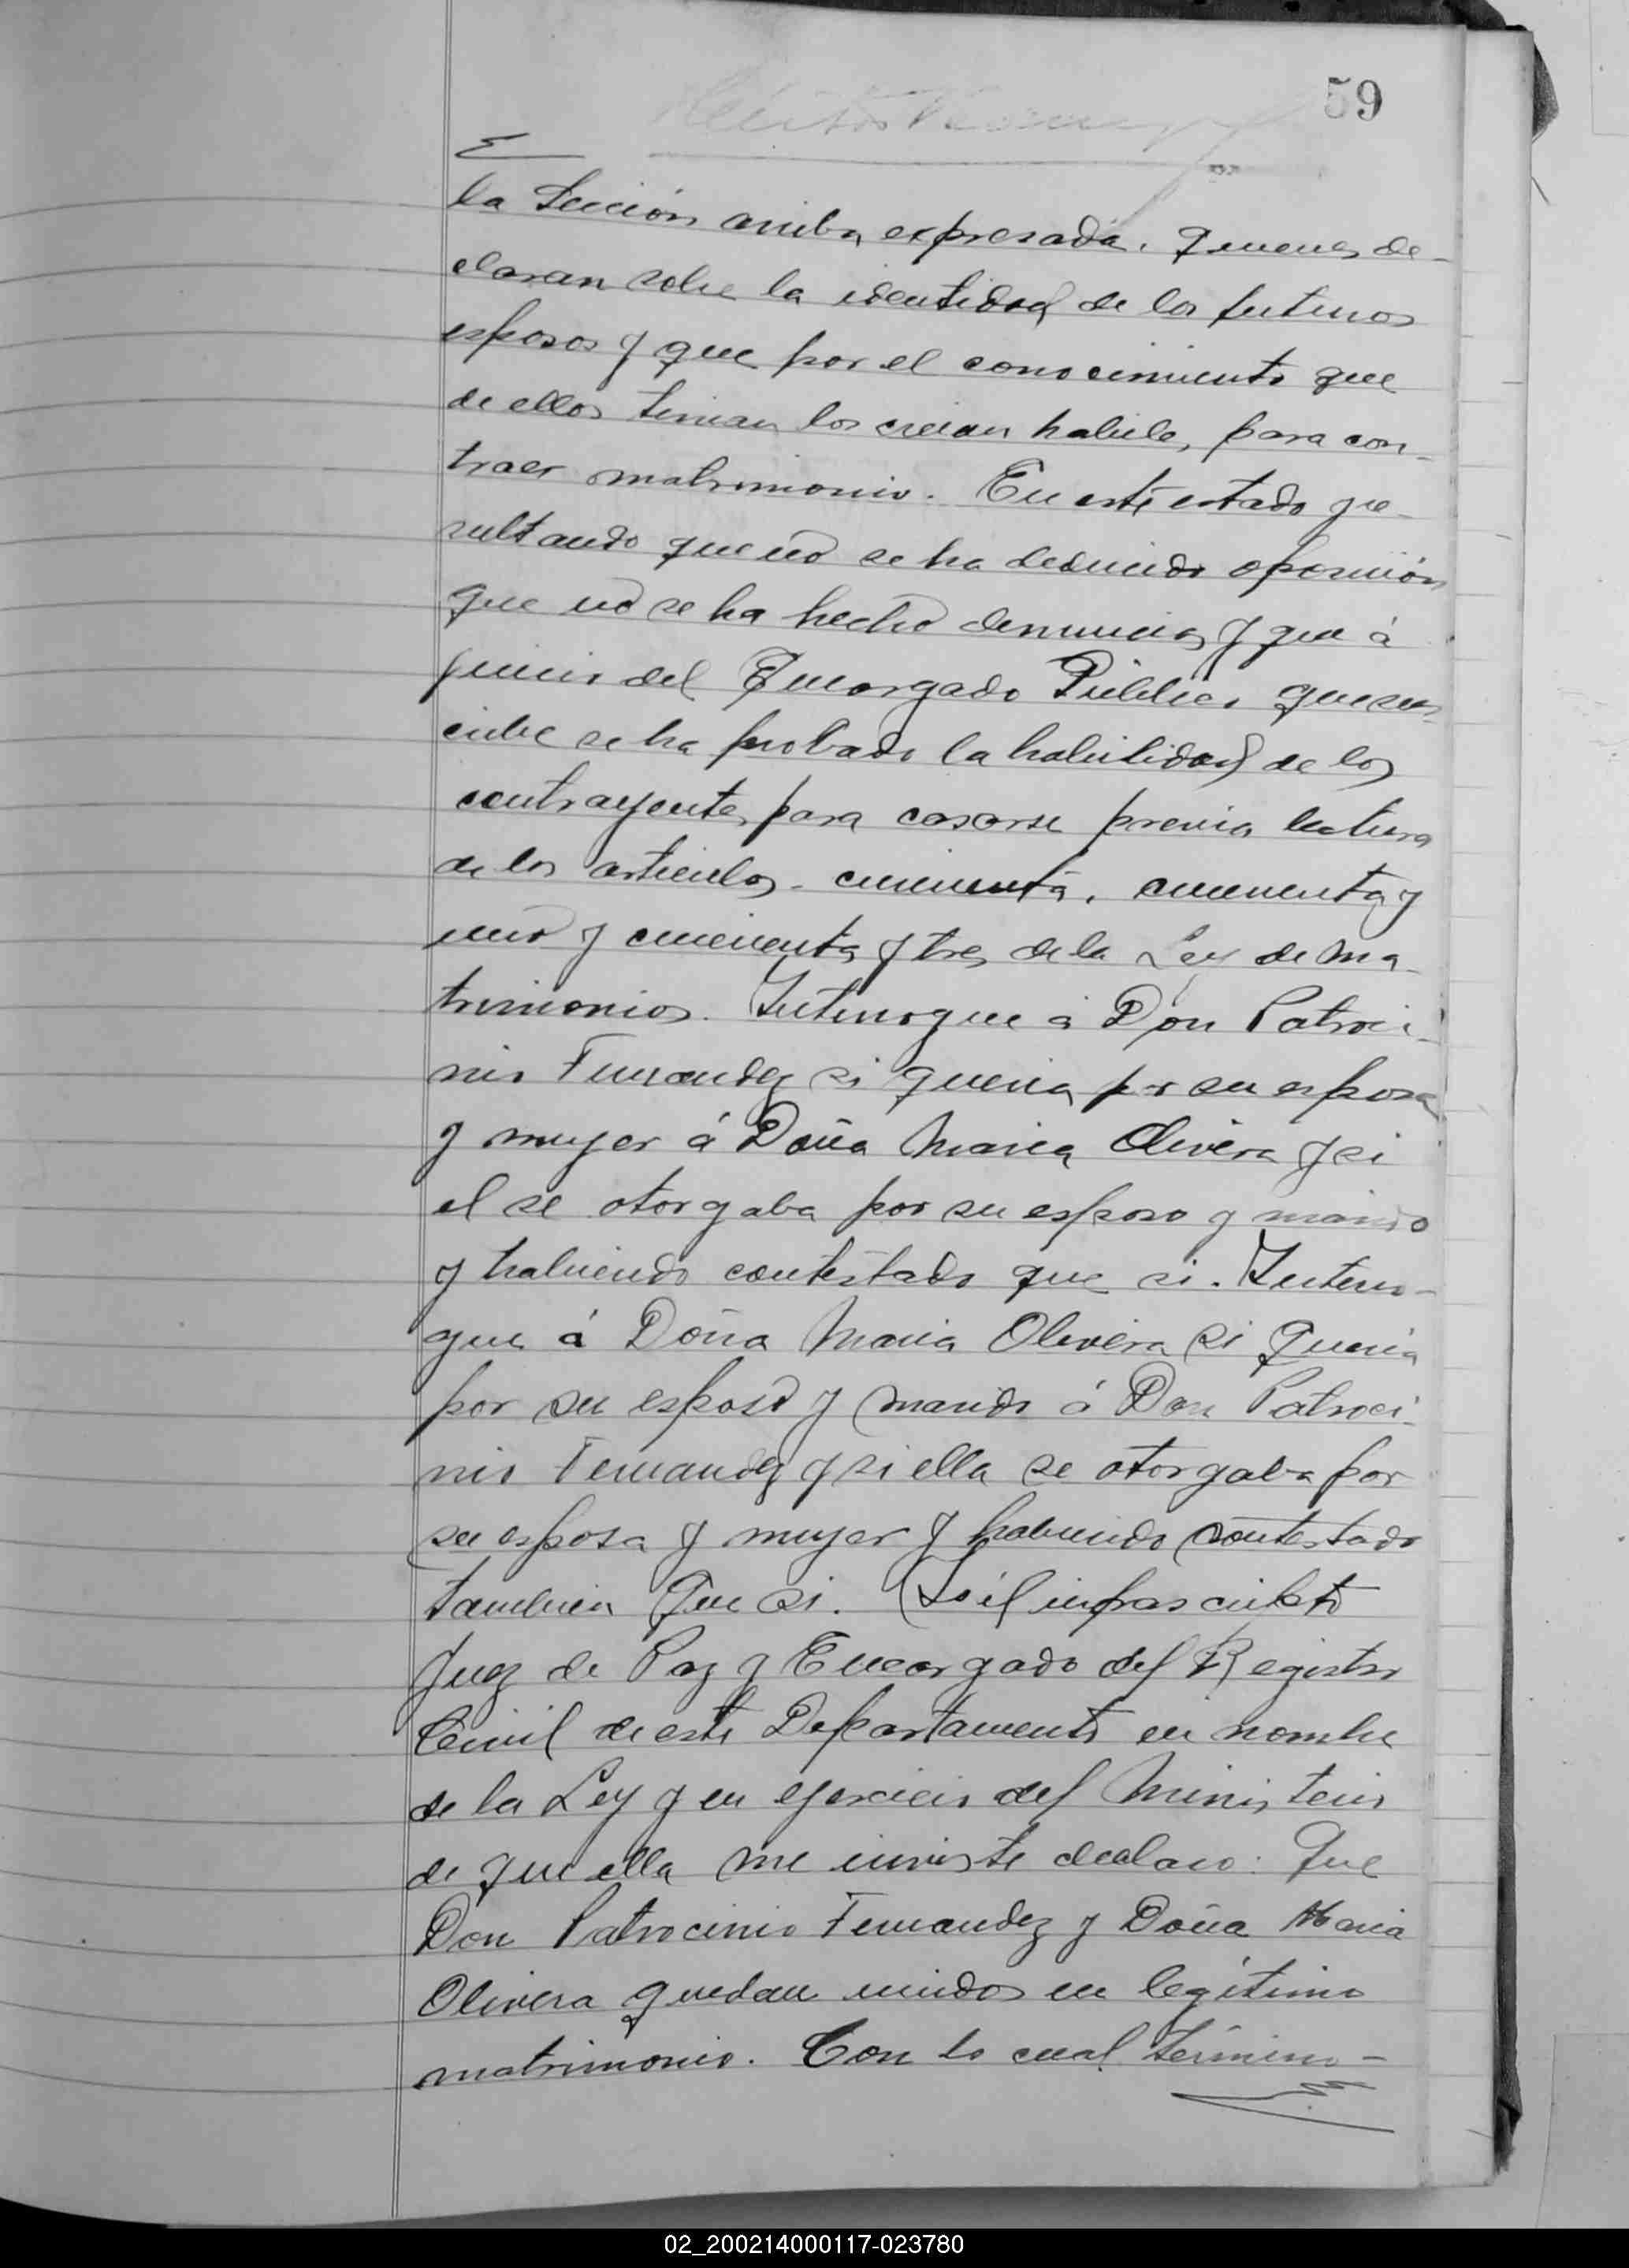 59
la Sección arriba expresada, quienes de-
claran sobre la identidad de los futuros
esposos y que por el conocimiento que
de ellos tenian los creian habiles, para con-
traer matrimonio. En este estado y re-
sultando que no se ha deducido oposición
que no se ha hecho denuncias y que á
juicio del Encargado Público que sus-
cribe se ha probado la habilidad de los
contrayentes para casarse previa lectura
de los articulos cincuenta, cincuenta y
uno y cincuenta y tres de la Ley de Ma-
trimonios. Interrogue á Don Patroci-
nio Fernandez si queria por su esposa
y mujer á Doña Maria Olivera y si
el se otorgaba por su esposo y marido
y habiendo contestado que si. Interro-
gue á Doña Maria Olivera si queria
por su esposo y marido á Don Patroci-
nio Fernandez y si ella se otorgaba por
su esposa y mujer y habiendo contestado
tambien que si. Yo él infrascripto
Juez de Paz y Encargado del Registro
Civil de este Departamento en nombre
de la Ley y en ejercicio del Ministerio
de que ella me inviste declaro: Que
Don Patrocinio Fernandez y Doña Maria
Olivera quedan unidos en legítimo
matrimonio. Con lo cual términó-
02_200214000117-023780